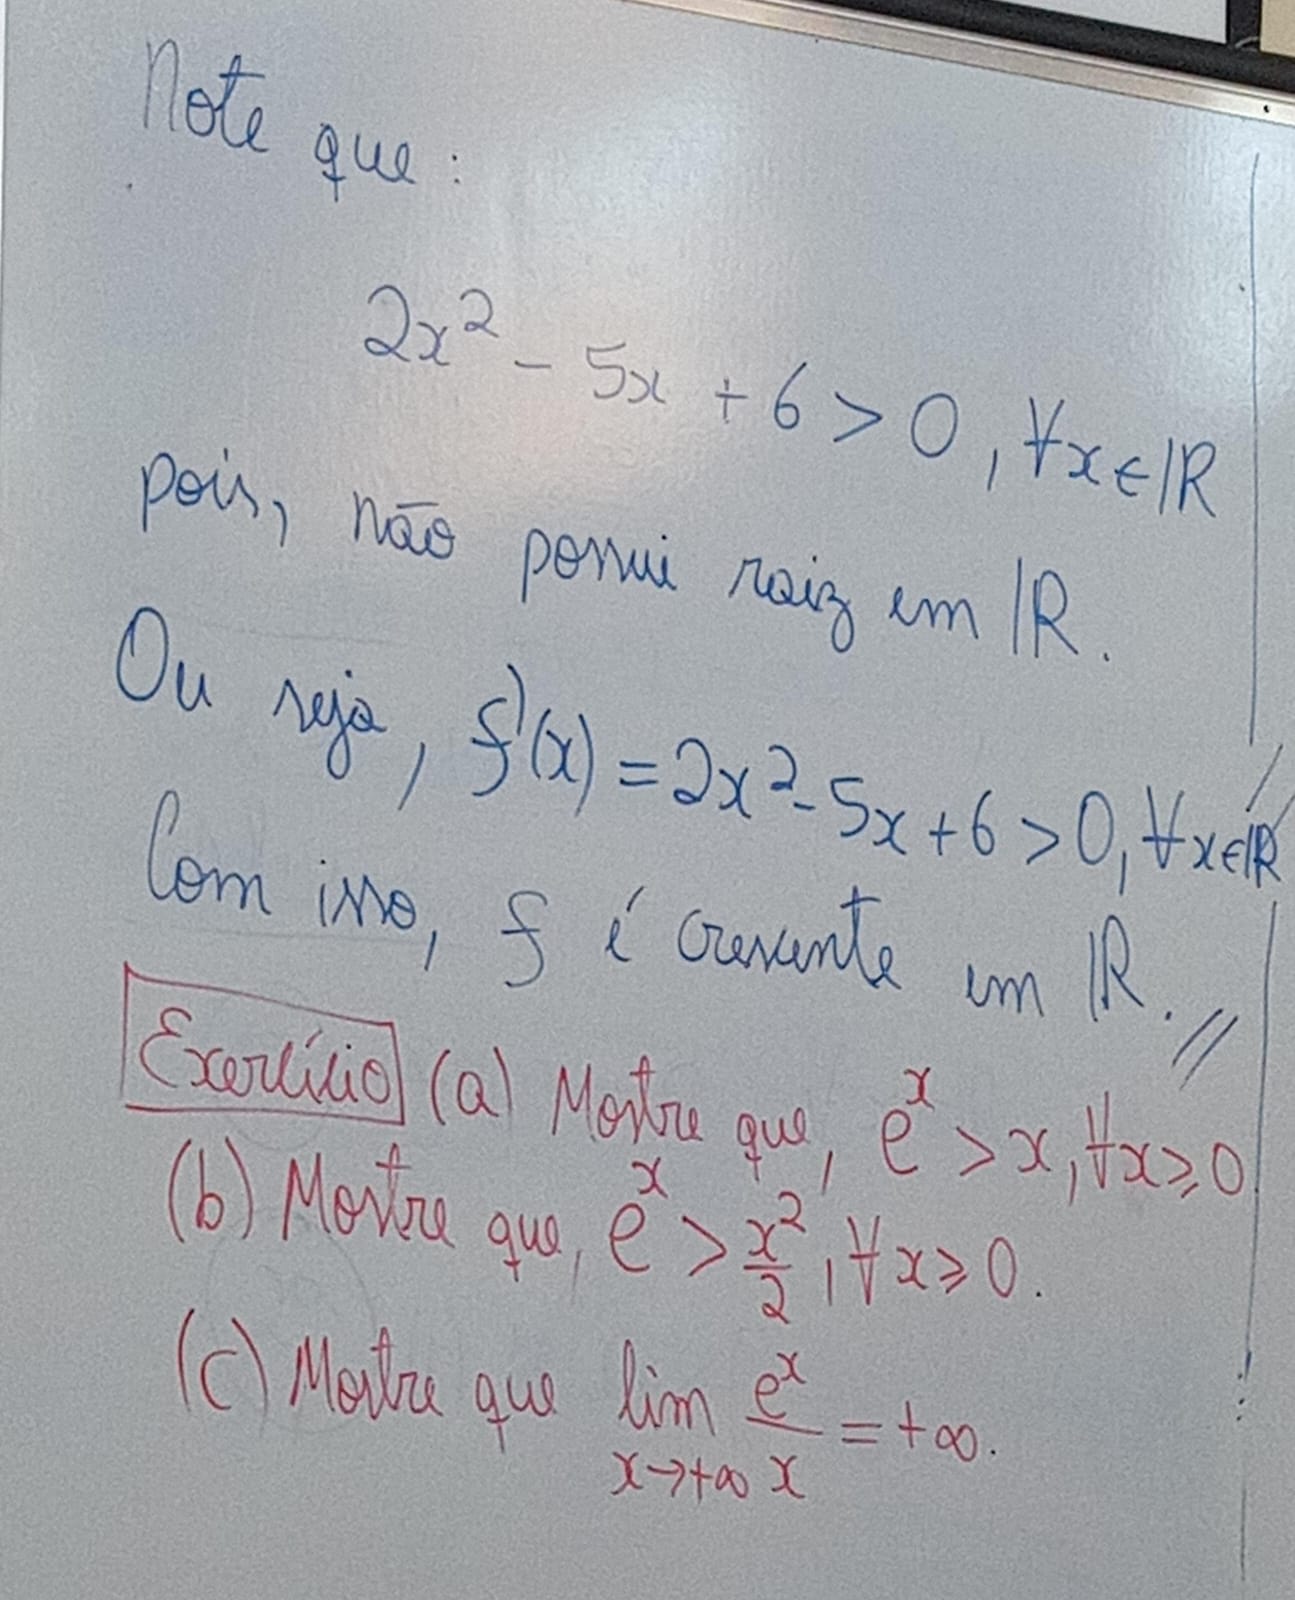 Note que:
2x² - 5x + 6 > 0, ∀x∈ℝ
pois, não possui raiz em ℝ.
Ou seja, f'(x) = 2x² - 5x + 6 > 0, ∀x∈ℝ
Com isso, f é crescente em ℝ. //
Exercício (a) Mostre que, eˣ > x, ∀x ≥ 0
(b) Mostre que, eˣ > x²/2, ∀x ≥ 0.
(c) Mostre que lim x→+∞ eˣ/x = +∞.